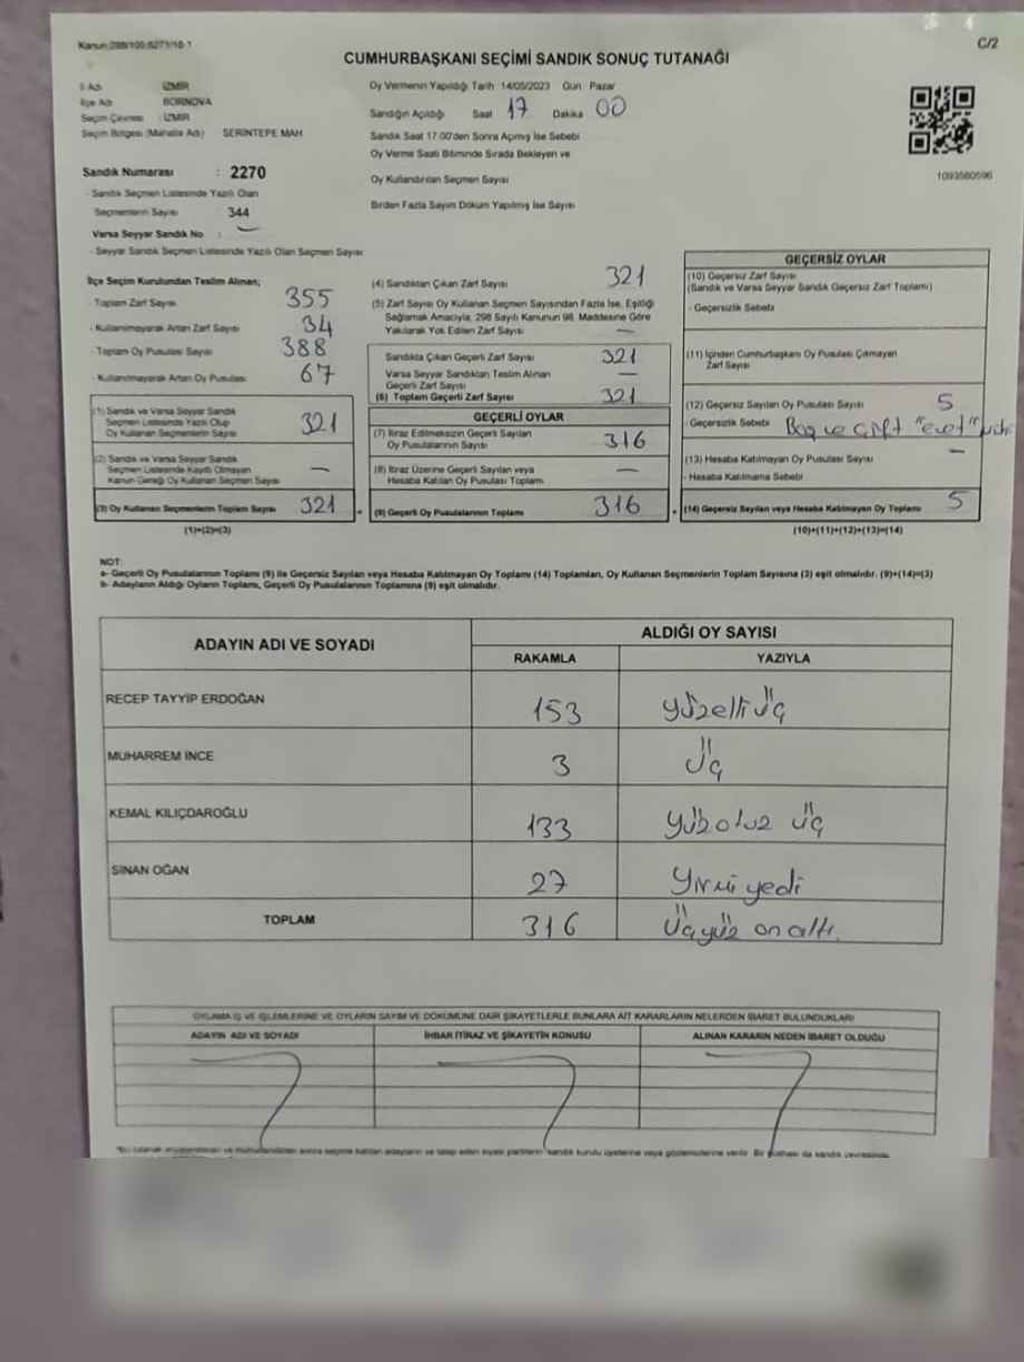 Kanun:298/100:6271/18-1
C/2
CUMHURBAŞKANI SEÇİMİ SANDIK SONUÇ TUTANAĞI
İl Adı : İZMİR
İlçe Adı : BORNOVA
Seçim Çevresi : İZMİR
Seçim Bölgesi (Mahalle Adı) SERİNTEPE MAH
Oy Vermenin Yapıldığı Tarih 14/05/2023 Gün Pazar
Sandığın Açıldığı Saat 17 Dakika 00
Sandık Saat 17.00'den Sonra Açılmış İse Sebebi
Oy Verme Saati Bitiminde Sırada Bekleyen ve
Oy Kullandırılan Seçmen Sayısı
Birden Fazla Sayım Döküm Yapılmış İse Sayısı
1093560596
Sandık Numarası : 2270
Sandık Seçmen Listesinde Yazılı Olan
Seçmenlerin Sayısı 344
Varsa Seyyar Sandık No : —
- Seyyar Sandık Seçmen Listesinde Yazılı Olan Seçmen Sayısı
İlçe Seçim Kurulundan Teslim Alınan;
- Toplam Zarf Sayısı 355
- Kullanılmayarak Artan Zarf Sayısı 34
- Toplam Oy Pusulası Sayısı 388
- Kullanılmayarak Artan Oy Pusulası 67
(1) Sandık ve Varsa Seyyar Sandık
Seçmen Listesinde Yazılı Olup
Oy Kullanan Seçmenlerin Sayısı 321
(2) Sandık ve Varsa Seyyar Sandık
Seçmen Listesinde Kayıtlı Olmayan
Kanun Gereği Oy Kullanan Seçmen Sayısı —
(3) Oy Kullanan Seçmenlerin Toplam Sayısı 321
(1)+(2)=(3)
(4) Sandıktan Çıkan Zarf Sayısı 321
(5) Zarf Sayısı Oy Kullanan Seçmen Sayısından Fazla İse, Eşitliği
Sağlamak Amacıyla, 298 Sayılı Kanunun 98. Maddesine Göre
Yakılarak Yok Edilen Zarf Sayısı —
Sandıkta Çıkan Geçerli Zarf Sayısı 321
Varsa Seyyar Sandıktan Teslim Alınan
Geçerli Zarf Sayısı —
(6) Toplam Geçerli Zarf Sayısı 321
GEÇERLİ OYLAR
(7) İtiraz Edilmeksizin Geçerli Sayılan
Oy Pusulalarının Sayısı 316
(8) İtiraz Üzerine Geçerli Sayılan veya
Hesaba Katılan Oy Pusulası Toplamı —
(9) Geçerli Oy Pusulalarının Toplamı 316
GEÇERSİZ OYLAR
(10) Geçersiz Zarf Sayısı
(Sandık ve Varsa Seyyar Sandık Geçersiz Zarf Toplamı)
- Geçersizlik Sebebi
(11) İçinden Cumhurbaşkanı Oy Pusulası Çıkmayan
Zarf Sayısı
(12) Geçersiz Sayılan Oy Pusulası Sayısı 5
- Geçersizlik Sebebi Boş ve Çift "evet"
(13) Hesaba Katılmayan Oy Pusulası Sayısı —
- Hesaba Katılmama Sebebi
(14) Geçersiz Sayılan veya Hesaba Katılmayan Oy Toplamı 5
(10)+(11)+(12)+(13)=(14)
NOT:
a- Geçerli Oy Pusulalarının Toplamı (9) ile Geçersiz Sayılan veya Hesaba Katılmayan Oy Toplamı (14) Toplamları, Oy Kullanan Seçmenlerin Toplam Sayısına (3) eşit olmalıdır. (9)+(14)=(3)
b- Adayların Aldığı Oyların Toplamı, Geçerli Oy Pusulalarının Toplamına (9) eşit olmalıdır.
ADAYIN ADI VE SOYADI
ALDIĞI OY SAYISI
RAKAMLA YAZIYLA
RECEP TAYYİP ERDOĞAN 153 yüzelli üç
MUHARREM İNCE 3 üç
KEMAL KILIÇDAROĞLU 133 yüz otuz üç
SİNAN OĞAN 27 yirmi yedi
TOPLAM 316 üçyüz on altı
OYLAMA İŞ VE İŞLEMLERİNE VE OYLARIN SAYIM VE DÖKÜMÜNE DAİR ŞİKAYETLERLE BUNLARA AİT KARARLARIN NELERDEN İBARET BULUNDUKLARI
ADAYIN ADI VE SOYADI İHBAR İTİRAZ VE ŞİKAYETİN KONUSU ALINAN KARARIN NEDEN İBARET OLDUĞU